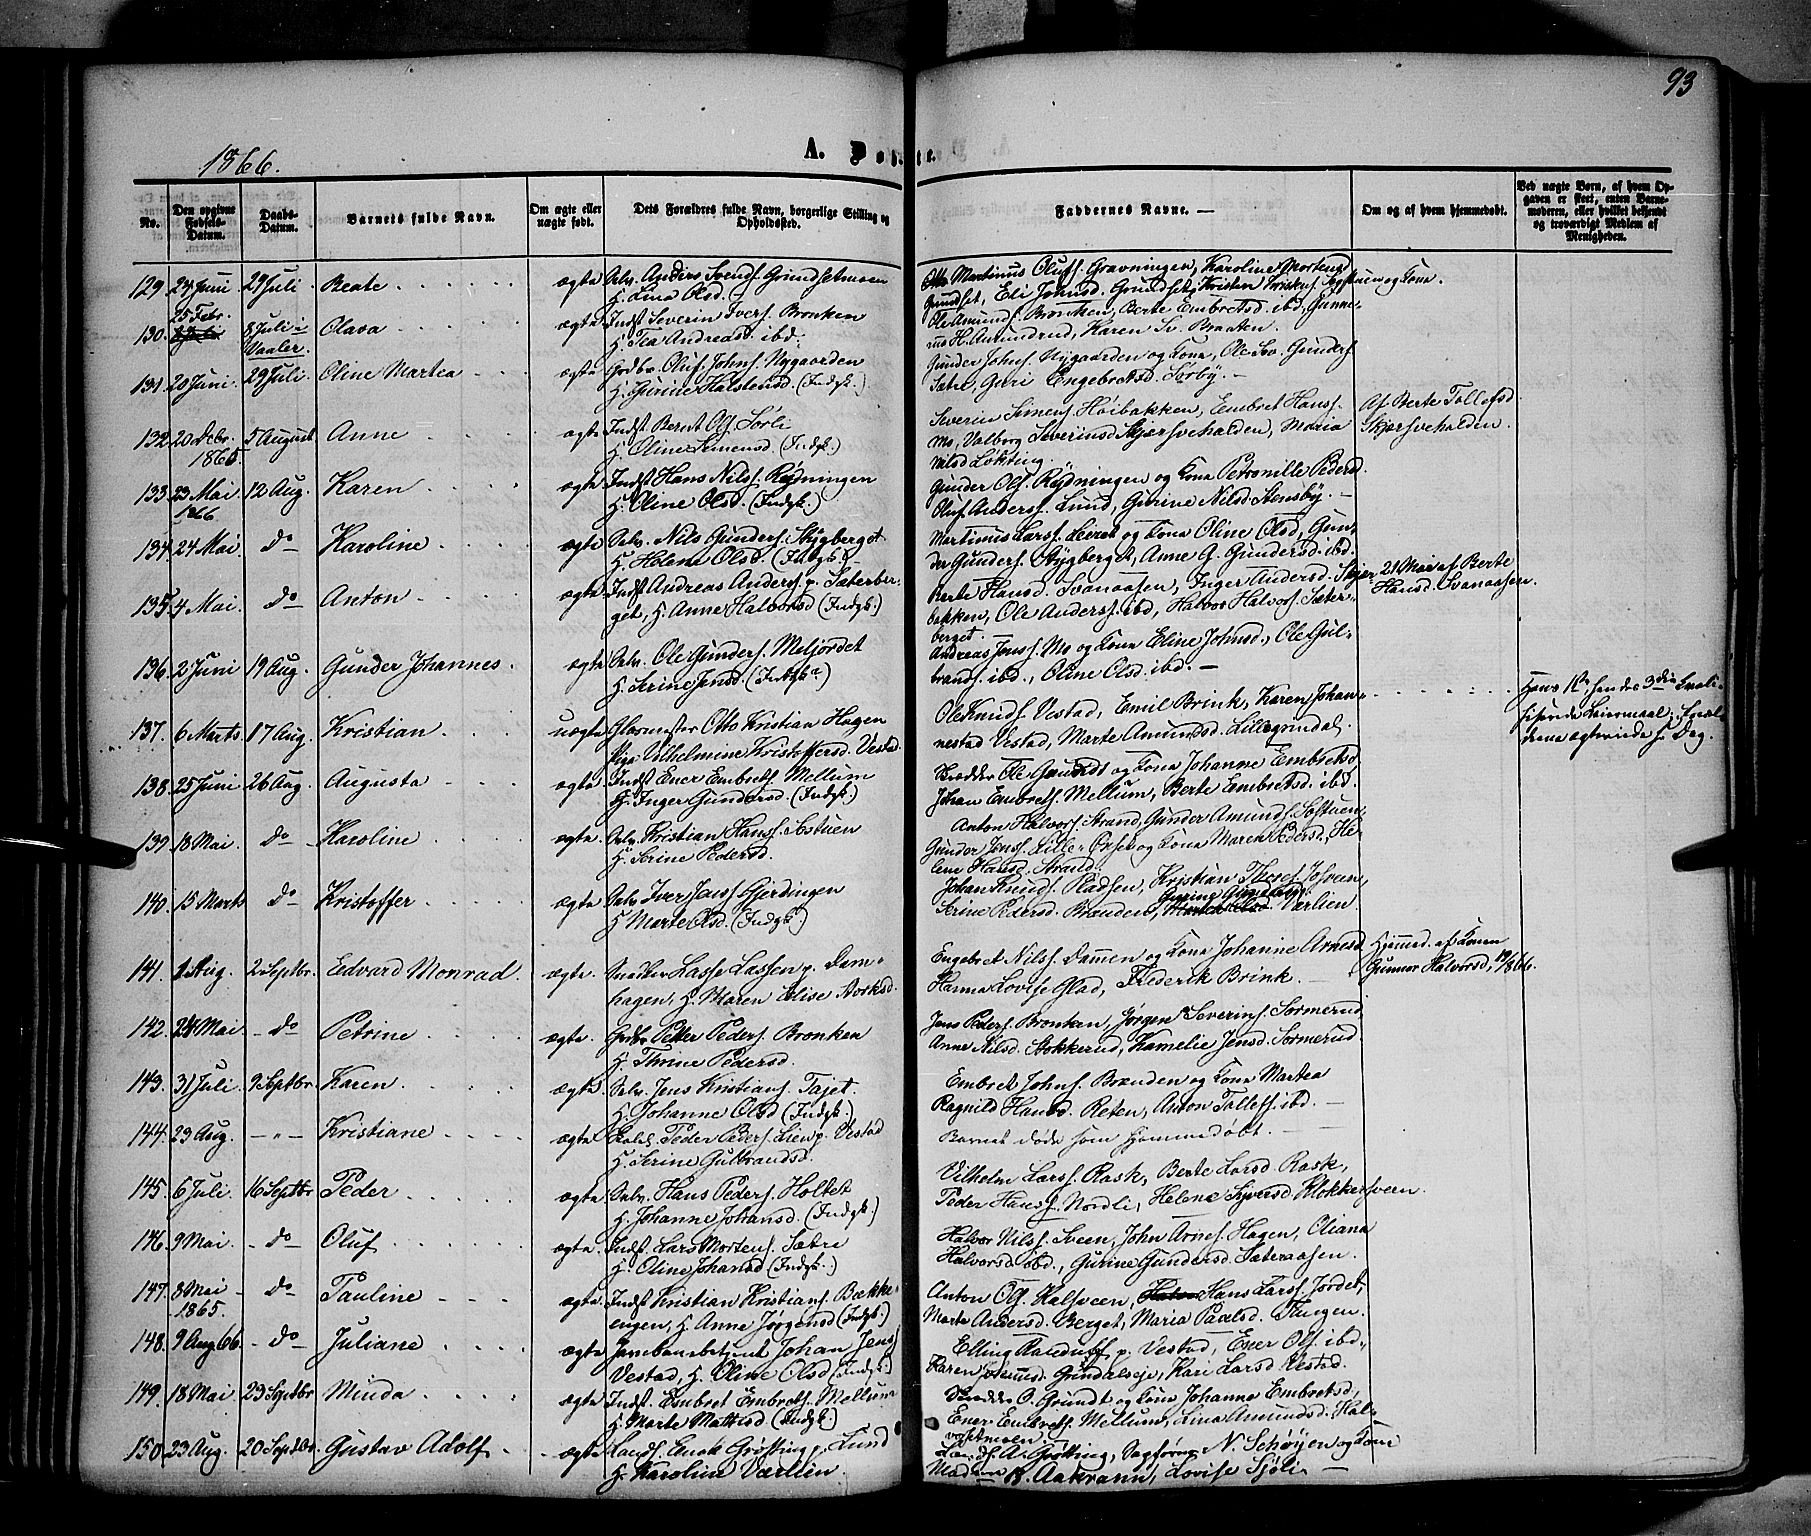 93
1866.
A. Døbte.
No.
Den opgivne Fødsels-Datum.
Daabs-Datum.
Barnets fulde Navn.
Om ægte eller uægte født.
Dets Forældres fulde Navn, borgerlige Stilling og Opholdssted.
Faddernes Navne.
Om og af hvem hjemmedøbt.
Ved uægte Børn, af hvem Opgaven er skeet, enten Barnemoderen, eller hvilket bekjendt og troværdigt Medlem af Menigheden.
129. 24 Juni 29 Juli Beate ægte Selv. Anders Svends. Grindsetmoen
H. Lina Olsd.
Martinus Olufs. Gravningen, Karoline Mortensd.
Grundset, Eli Johnsd. Grundset, Kristen og Kona.
130. 25 Febr. 8 Juli i Vaaler. Olava ægte Indst Severin Ivers. Bronken
H. Tea Andreasd. ibd.
Ole Amunds. Bronken, Berte Embretsd. ibd, Gunne-
rus H. Amundrud, Karen Sv. Braaten.
131. 20 Juni. 29 Juli. Oline Martea ægte Grdbr. Oluf Johns. Nygaarden
H. Gurine Halstensd. (Indgk.)
Gunder Johns. Nygaarden og Kona, Ole Sv. Gunders.
Sætre, Guri Engebretsd. Sørby.
132. 20 Decbr. 1865. 5 August Anne ægte Indst. Bernt Ols. Sørli
H. Oline Simensd. (Indgk.)
Severin Simens. Høibakken, Embret Hans.
Mo, Valborg Severinsd. Skjærsvehalden, Maria
Nilsd Løkting.
Af Berte Tollefsd.
Skjærsvehalden.
133. 23 Mai 1866 12 Aug. Karen ægte Indst Hans Nils. Rydningen
H. Oline Olsd. (Indgk.)
Gunder Ols. Rydningen og Kona Petronille Pedersd.
Oluf Anders. Lund, Gurine Nilsd. Stensby.
134. 24 Mai. do Karoline ægte Selv. Nils Gunders. Skygberget
H. Helene Olsd. (Indgk.)
Martinus Lars. Leeret og Kona Oline Olsd, Gun-
der Gunders. Skygberget, Anne G. Gundersd. ibd.
135. 4 Mai. do Anton ægte Indst Andreas Anders. p. Sæterber-
get, H. Anne Halvorsd (Indgk.)
Berte Hansd. Svanaasen, Inger Andersd. Skjær-
bakken, Ole Anders. ibd, Halvor Halvors. Sæter-
berget.
21 Mai af Berte
Hansd. Svanaasen.
136. 2 Juni 19 Aug. Gunder Johannes. ægte Selv. Ole Gunders. Meljordet
H. Serine Jensd. (Indgk.)
Andreas Jens. Mo og Kona Eline Johnsd., Ole Gul-
brands. ibd., Oline Olsd. ibd.
137. 6 Marts 17 Aug. Kristian uægte Glarmester Otto Kristian Hagen
Pige Vilhelmine Kristoffersd. Vestad
Ole Knuds. Vestad, Emil Brink, Karen Johan-
nesdt Vestad, Marte Amundsd. Lillegrindal.
Hans 1ste hendes 3die
Leiermaal.
Dag.
138. 25 Juni 26 Aug. Augusta ægte Indst Ener Embrets. Mellum
H. Inger Gundersd. (Indgk.)
Skrædder Ole Grundt og Kona Johanne Embretsd
Johan Embrets. Mellum, Berte Embretsd. ibd.
139. 18 Mai. do Karoline ægte. Selv. Kristian Hans. Sostuen
H. Serine Pedersd.
Anton Halvors. Strand, Gunder Amunds. Sostuen
Gunder Jens. Lille-Øxset og Kona Maren Pedersd., He-
lene Hansd. Strand.
140. 15 Marts do Kristoffer ægte Selv. Iver Jens. Gjerdingen
H. Marte Olsd. (Indgk.)
Johan Knuds. Pladsen, Kristian Johveen,
Serine Pedersd. Brænden, Værlien.
141. 1 Aug. 2 Septbr. Edvard Monrad. ægte. Snedker Lasse Lassen p. Dam-
hagen, H. Maren Elise Aarksd.
Engebret Nils. Dammen og Kona Johanne Arnesd
Hanna Lovise Glad, Frederik Brink.
Hjemmd. af Konen
Gunnor Halvorsd, 1866.
142. 28 Mai. do Petrine ægte. Grdbr Petter Peders. Bronken
H. Thrine Pedersd.
Jens Peders. Bronken, Jørgen Severins. Sormerud
Anne Nilsd. Stokkerud, Kamelie Jensd. Sormerud.
143. 31 Juli 9 Septbr. Karen. ægte Selv. Jens Kristians. Tajet.
H. Johanne Olsd (Indgk.)
Embret Johns. Brænden og Kona Martea
Ragnild Hansd. Reten, Anton Tollefs. ibd.
144. 23 Aug. -"- Kristiane ægte Peder Peders. Lien p. Vestad
H. Serine Gulbrandsd.
Barnet døde som hjemmedøbt.
145. 6 Juli. 16 Septbr Peder ægte. Selv. Hans Peders. Holtet
H. Johanne Johansd. (Indgk.)
Vilhelm Lars. Rask, Berte Larsd. Rask,
Peder Hans. Nordli, Helene Syversd. Klokkersveen.
146. 9 Mai. do Oluf ægte. Indst. Lars Mortens. Sætre
H. Oline Johansd (Indgk.)
Halvor Nils. Sveen, John Arnes. Hagen, Oliana
Halvorsd. ibd., Gurine Gundersd. Sæteraasen.
147. 8 Mai 1865. do Pauline ægte. Indst Kristian Kristians. Bække-
engen, H. Anne Jørgensd (Indgk.)
Anton Ols. Kalsveen, Hans Lars. Jordet,
Marte Andersd. Berget, Maria Paulsd. Stuegen.
148. 9 Aug 66. do Juliane ægte Jernbanebetjent Johan Jens.
Vestad, H. Oline Olsd (Indgk.)
Elling p. Vestad, Ener Ols. ibd.,
Karen Grindalseje, Kari Larsd. Vestad.
149. 18 Mai. 23 Septbr Minda ægte. Indst. Embret Embrets. Mellum
H. Marte Mathisd (Indgk.)
Skrædder O. Grundt og Kona Johanne Embretsd,
Ener Embrets. Mellum, Lina Amundsd. Hal-
vorsetmoen.
150. 23 Aug. 20 Septbr. Gustav Adolf ægte. Grøtting p. Lund
H. Karoline Værlien.
A. Grøtting, Sagfører N. Schøyen og Kone
Madam B. Aakrann, Lovise Sjøli.